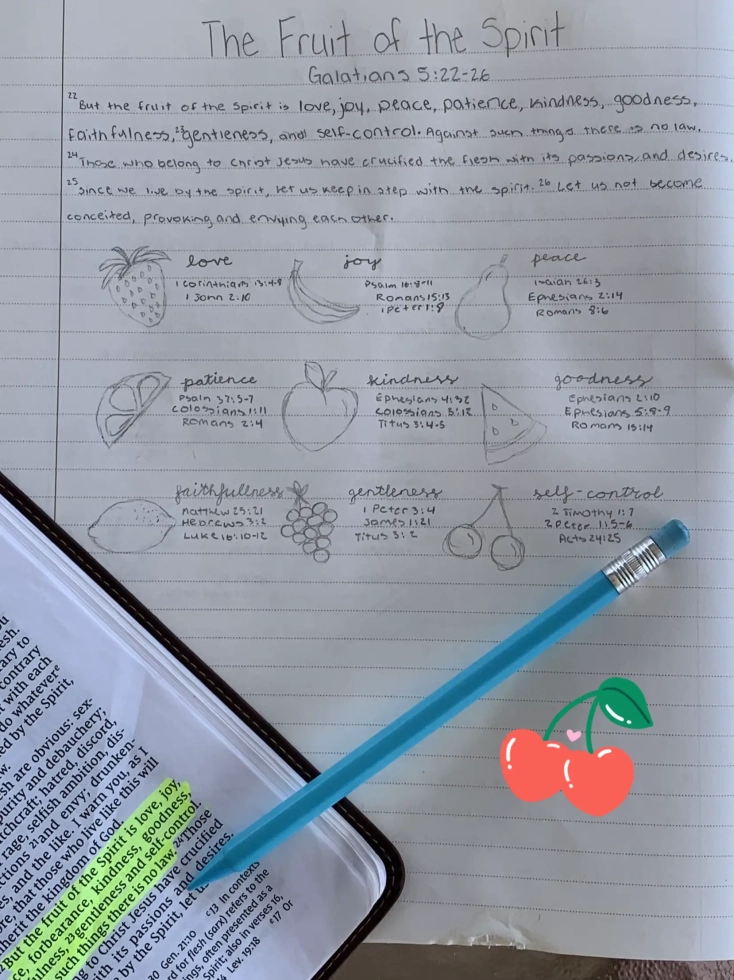 The Fruit of the Spirit
Galatians 5:22-26
22 But the fruit of the Spirit is love, joy, peace, patience, kindness, goodness,
faithfulness, 23 gentleness, and self-control. Against such things there is no law.
24 Those who belong to Christ Jesus have crucified the flesh with its passions and desires.
25 Since we live by the spirit, let us keep in step with the spirit. 26 Let us not become
conceited, provoking and envying each other.
love
1 Corinthians 13:4-8
1 John 2:10
joy
Psalm 16:8-11
Romans 15:13
1 Peter 1:8
peace
Isaiah 26:3
Ephesians 2:14
Romans 8:6
patience
Psalm 37:3-7
Colossians 1:11
Romans 2:4
kindness
Ephesians 4:32
Colossians 3:12
Titus 3:4-5
goodness
Ephesians 2:10
Ephesians 5:8-9
Romans 15:14
faithfullness
Matthew 25:21
Hebrews 3:2
Luke 16:10-12
gentleness
1 Peter 3:4
James 1:21
Titus 3:2
self-control
2 Timothy 1:7
2 Peter 1:5-6
Acts 24:25
esh,
ary to
contrary
with each
do whatever
ed by the Spirit,
w.
sh are obvious: sex-
purity and debauchery;
tchcraft; hatred, discord,
rage, selfish ambition, dis-
ctions 21 and envy; drunken-
es, and the like. I warn you, as I
ore, that those who live like this will
nherit the kingdom of God.
But the fruit of the Spirit is love, joy,
ce, forbearance, kindness, goodness,
ulness, 23 gentleness and self-control.
such things there is no law. 24 Those
to Christ Jesus have crucified
with its passions and desires.
by the Spirit, let us
Gen. 21:10
c13 In contexts
d for flesh (sarx) refers to the
ings, often presented as a
Spirit; also in verses 16,
Lev. 19:18
e17 Or